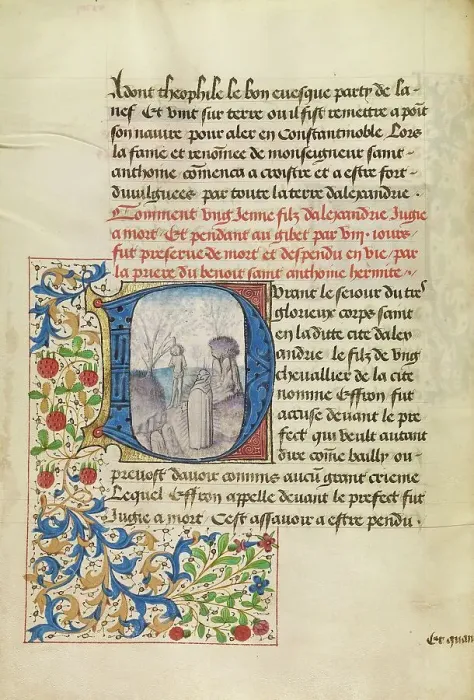 Adont theophile le bon evesque party de la-
nef Et vint sur terre ou il fist remettre a point
son navire pour aler en Constantinoble Lors
la fame et renomee de monseigneur saint-
anthome comenca a croistre et a estre fort-
divulguees par toute la terre dalexandrie.
Comment ung Jenne filz dalexandrie Jugie
a mort. Et pendant au gibet par viii. iours.
fut preserve de mort et despendu en vie par
la priere du benoit saint anthome hermite
Durant le seiour du tres
glorieux corps saint
en la ditte cite dalex
andrie le filz de ung
chevallier de la cite
nomme Effron fut
accuse devant le pre
fect qui veult autant
dire come bailly ou-
prevost davoir commis aucu grant crieme
Lequel Effron appelle devant le prefect fut
Jugie a mort Cest assavoir a estre pendu.
Et quan